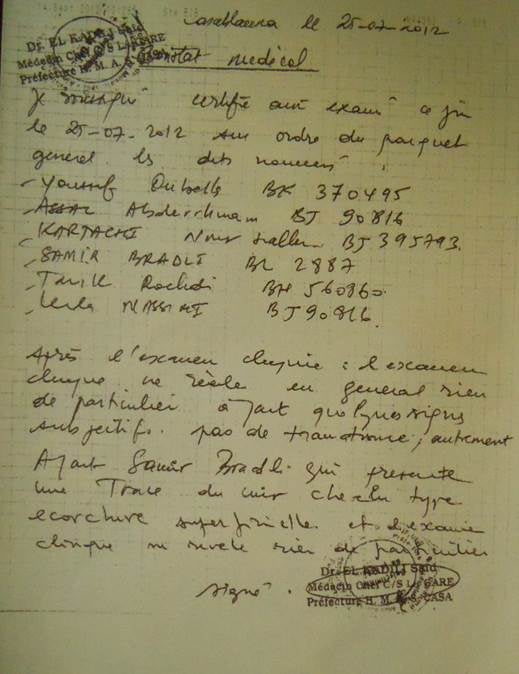 Casablanca le 25-07-2012
Dr. EL KADILI Saïd
Médecin Chef C/S La GARE
Préfecture H. M. A. S. CASA
Constat medical
Je soussigné certifie avoir examiné ce jour
le 25-07-2012 sur ordre du parquet
general les dits nommés :
- Youssef BK 370495
- ASSAL Abderrhmam BJ 90816
- KARTACHI Nour BJ 395793.
- SAMIR BRADLI BL 2887
- Tarik Rochdi BH 560860.
- Leila NASSIMI BJ 90816.
Après l'examen clinique : l'examen
clinique ne révèle en general rien
de particulier à part quelques signes
subjectifs. pas de traumatisme ; autrement
Apart Samir Bradli qui presente
une Trace du cuir chevelu type
ecorchure superficielle. et l'examen
clinique ne revele rien de particulier
signé.
Dr. EL KADILI Saïd
Médecin Chef C/S La GARE
Préfecture H. M. A. S. CASA